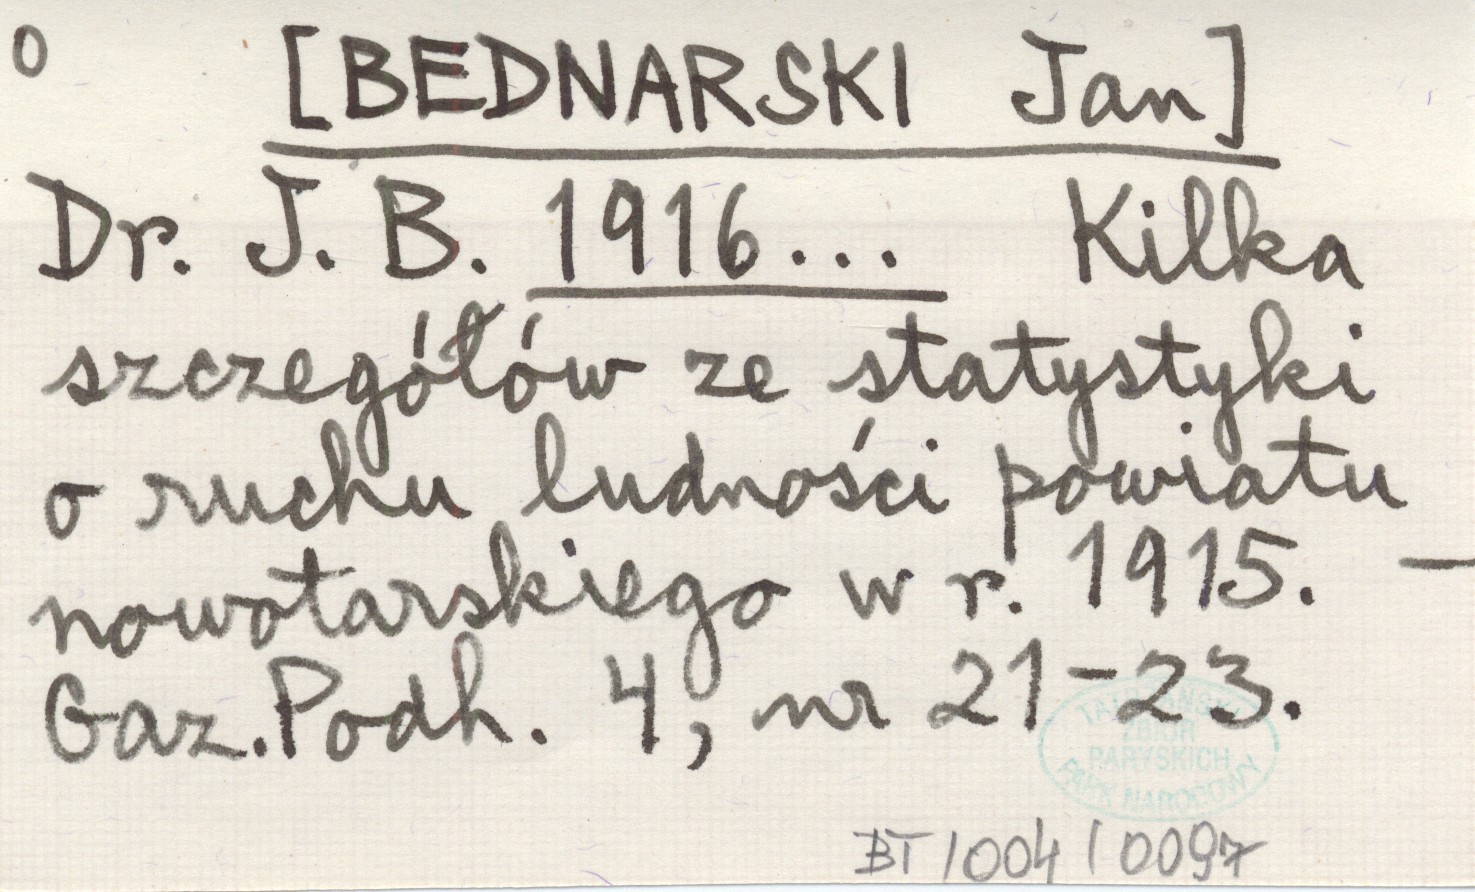 o [BEDNARSKI Jan]
Dr. J. B. 1916... Kilka
szczegółów ze statystyki
o ruchu ludności powiatu
nowotarskiego w r. 1915. —
Gaz. Podh. 4, nr 21-23.
TATRZAŃSKI
ZBIÓR
PARYSKICH
PARK NARODOWY
BT/004/0097